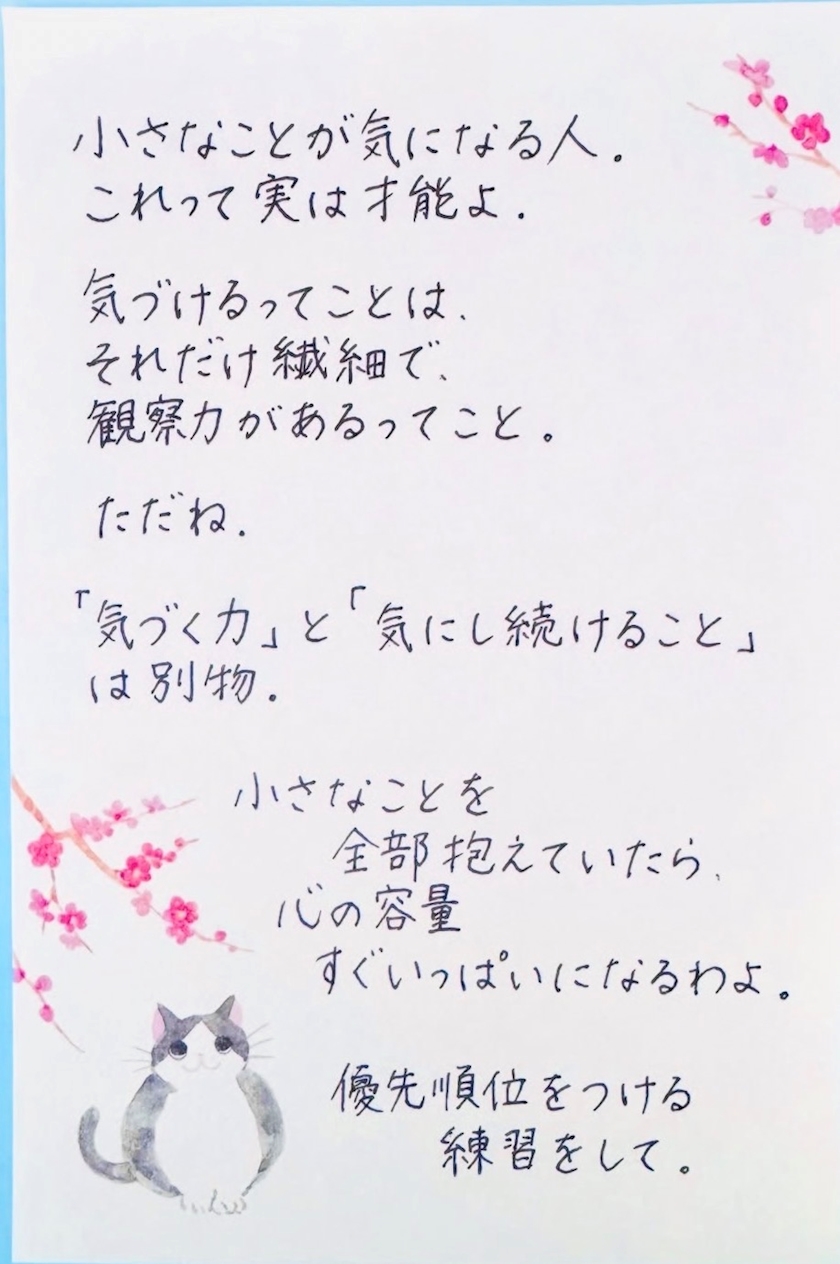 小さなことが気になる人。
これって実は才能よ。
気づけるってことは、
それだけ繊細で、
観察力があるってこと。
ただね。
「気づく力」と「気にし続けること」
は別物。
小さなことを
全部抱えていたら、
心の容量
すぐいっぱいになるわよ。
優先順位をつける
練習をして。